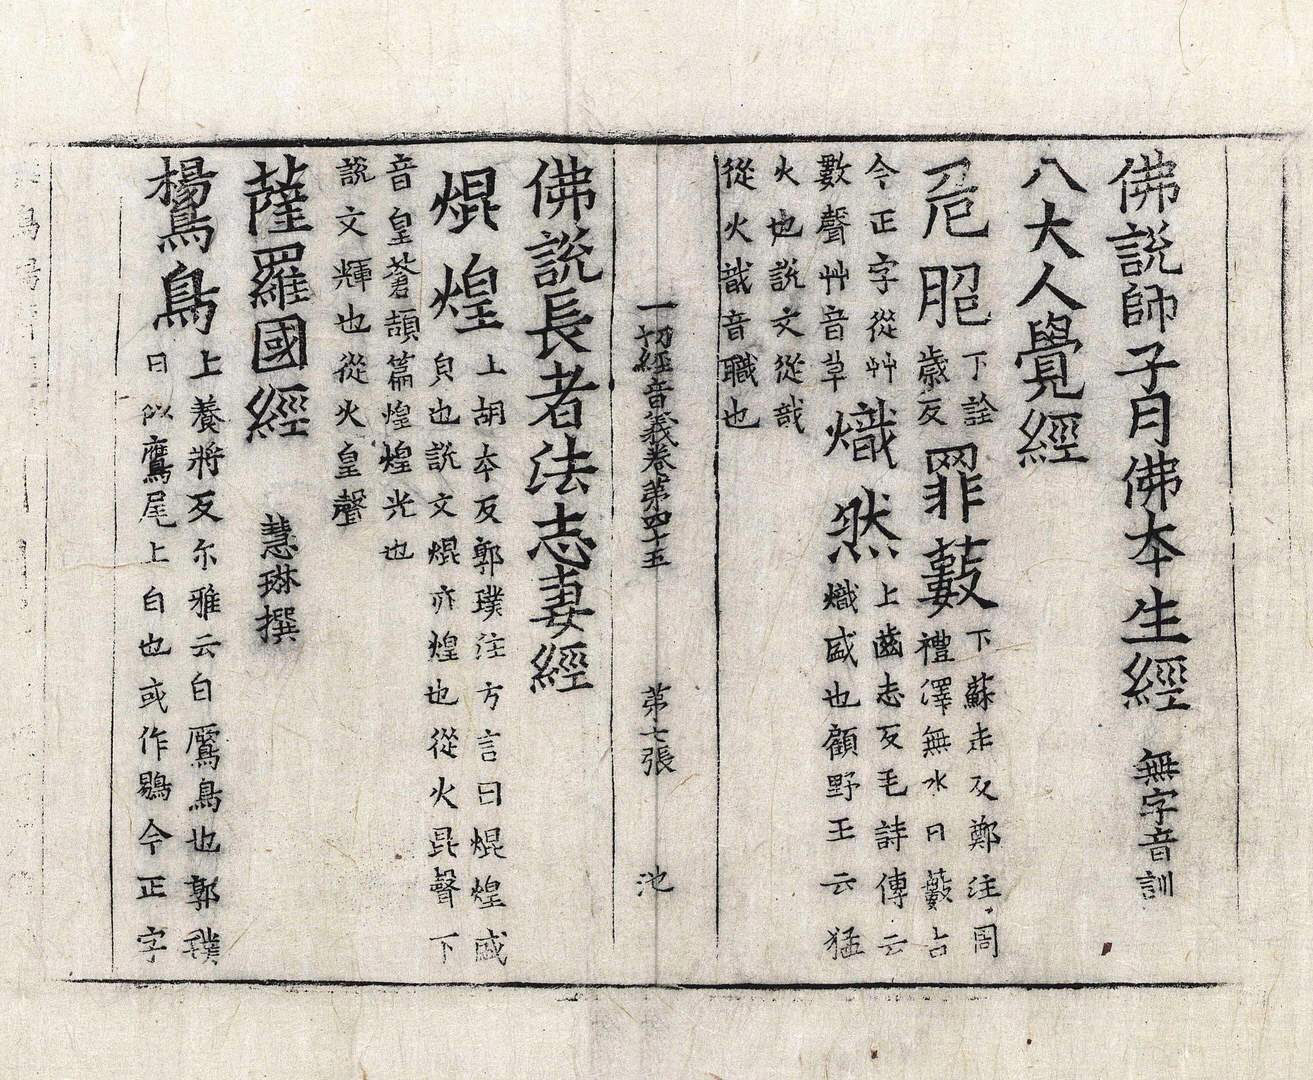 佛說師子月佛本生經 無字音訓
八大人覺經
危脃 下詮歲反 罪藪 下蘇走反鄭注周禮澤無水曰藪古今正字從艸數聲艸音草 熾然 上齒志反毛詩傳云熾盛也顧野王云猛火也說文從哉從火哉音職也
一切經音義卷第四十五 第七張 池
佛說長者法志妻經
焜煌 上胡本反郭璞注方言曰焜煌盛皃也說文焜亦煌也從火昆聲下音皇蒼頡篇煌煌光也說文輝也從火皇聲
薩羅國經 慧琳撰
鸉鳥 上養將反尓雅云白鷢鳥也郭璞曰似鷹尾上白也或作鶍今正字